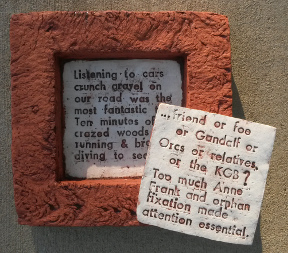 Listening to cars
crunch gravel on
our road was the
most fantastic
Ten minutes of
crazed woods
running &
diving to
...friend or foe
or Gandalf or
Orcs or relatives,
or the KGB?
Too much Anne
Frank and orphan
fixation made
attention essential.